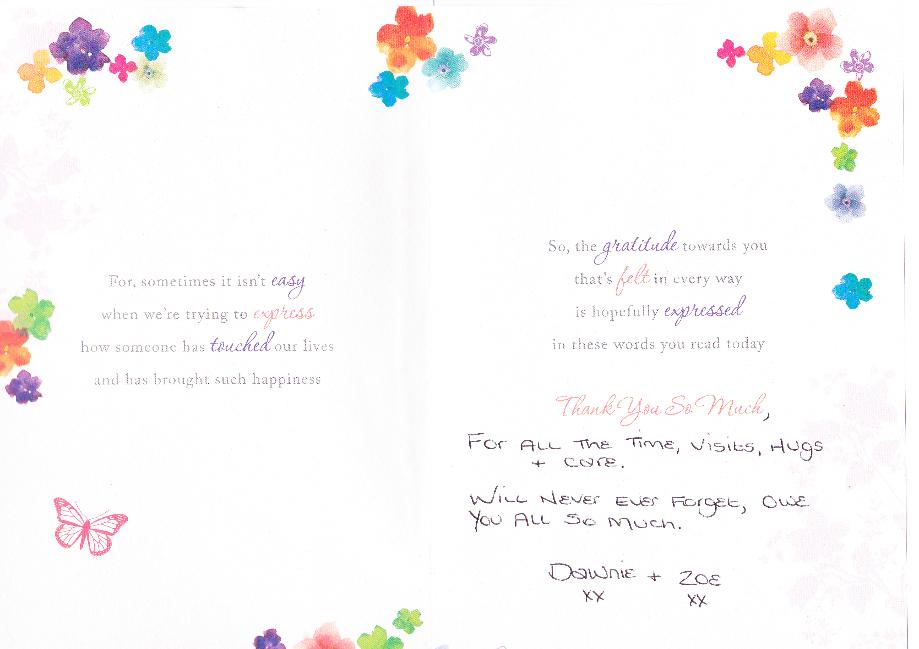 For, sometimes it isn't easy
when we're trying to express
how someone has touched our lives
and has brought such happiness
So, the gratitude towards you
that's felt in every way
is hopefully expressed
in these words you read today
Thank You So Much,
FOR ALL THE TIME, VISITS, HUGS
+ CARE.
WILL NEVER EVER FORGET, OWE
YOU ALL SO MUCH.
DAWNIE + ZOE
xx xx